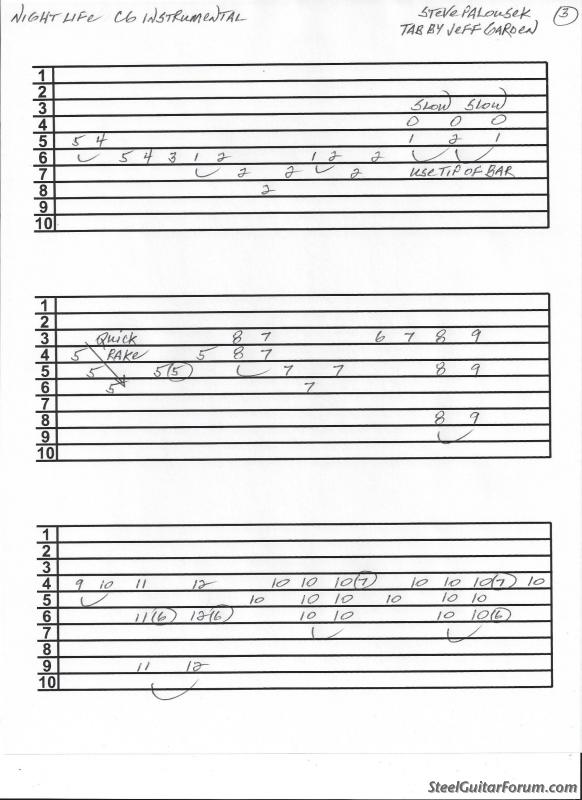 NIGHT LIFE C6 INSTRUMENTAL
STEVE PALOUSEK 3
TAB BY JEFF GARDEN
1
2
3 SLOW SLOW
4 0 0 0
5 5 4 1 2 1
6 5 4 3 1 2 1 2 2
7 2 2 2 USE TIP OF BAR
8 2
9
10
1
2
3 QUICK 8 7 6 7 8 9
4 5 RAKE 5 8 7
5 5 5(5) 7 7 8 9
6 5 7
7
8 8 9
9
10
1
2
3
4 9 10 11 12 10 10 10(7) 10 10 10(7) 10
5 10 10 10 10 10 10
6 11(6) 12(6) 10 10 10 10(6)
7
8
9 11 12
10
SteelGuitarForum.com